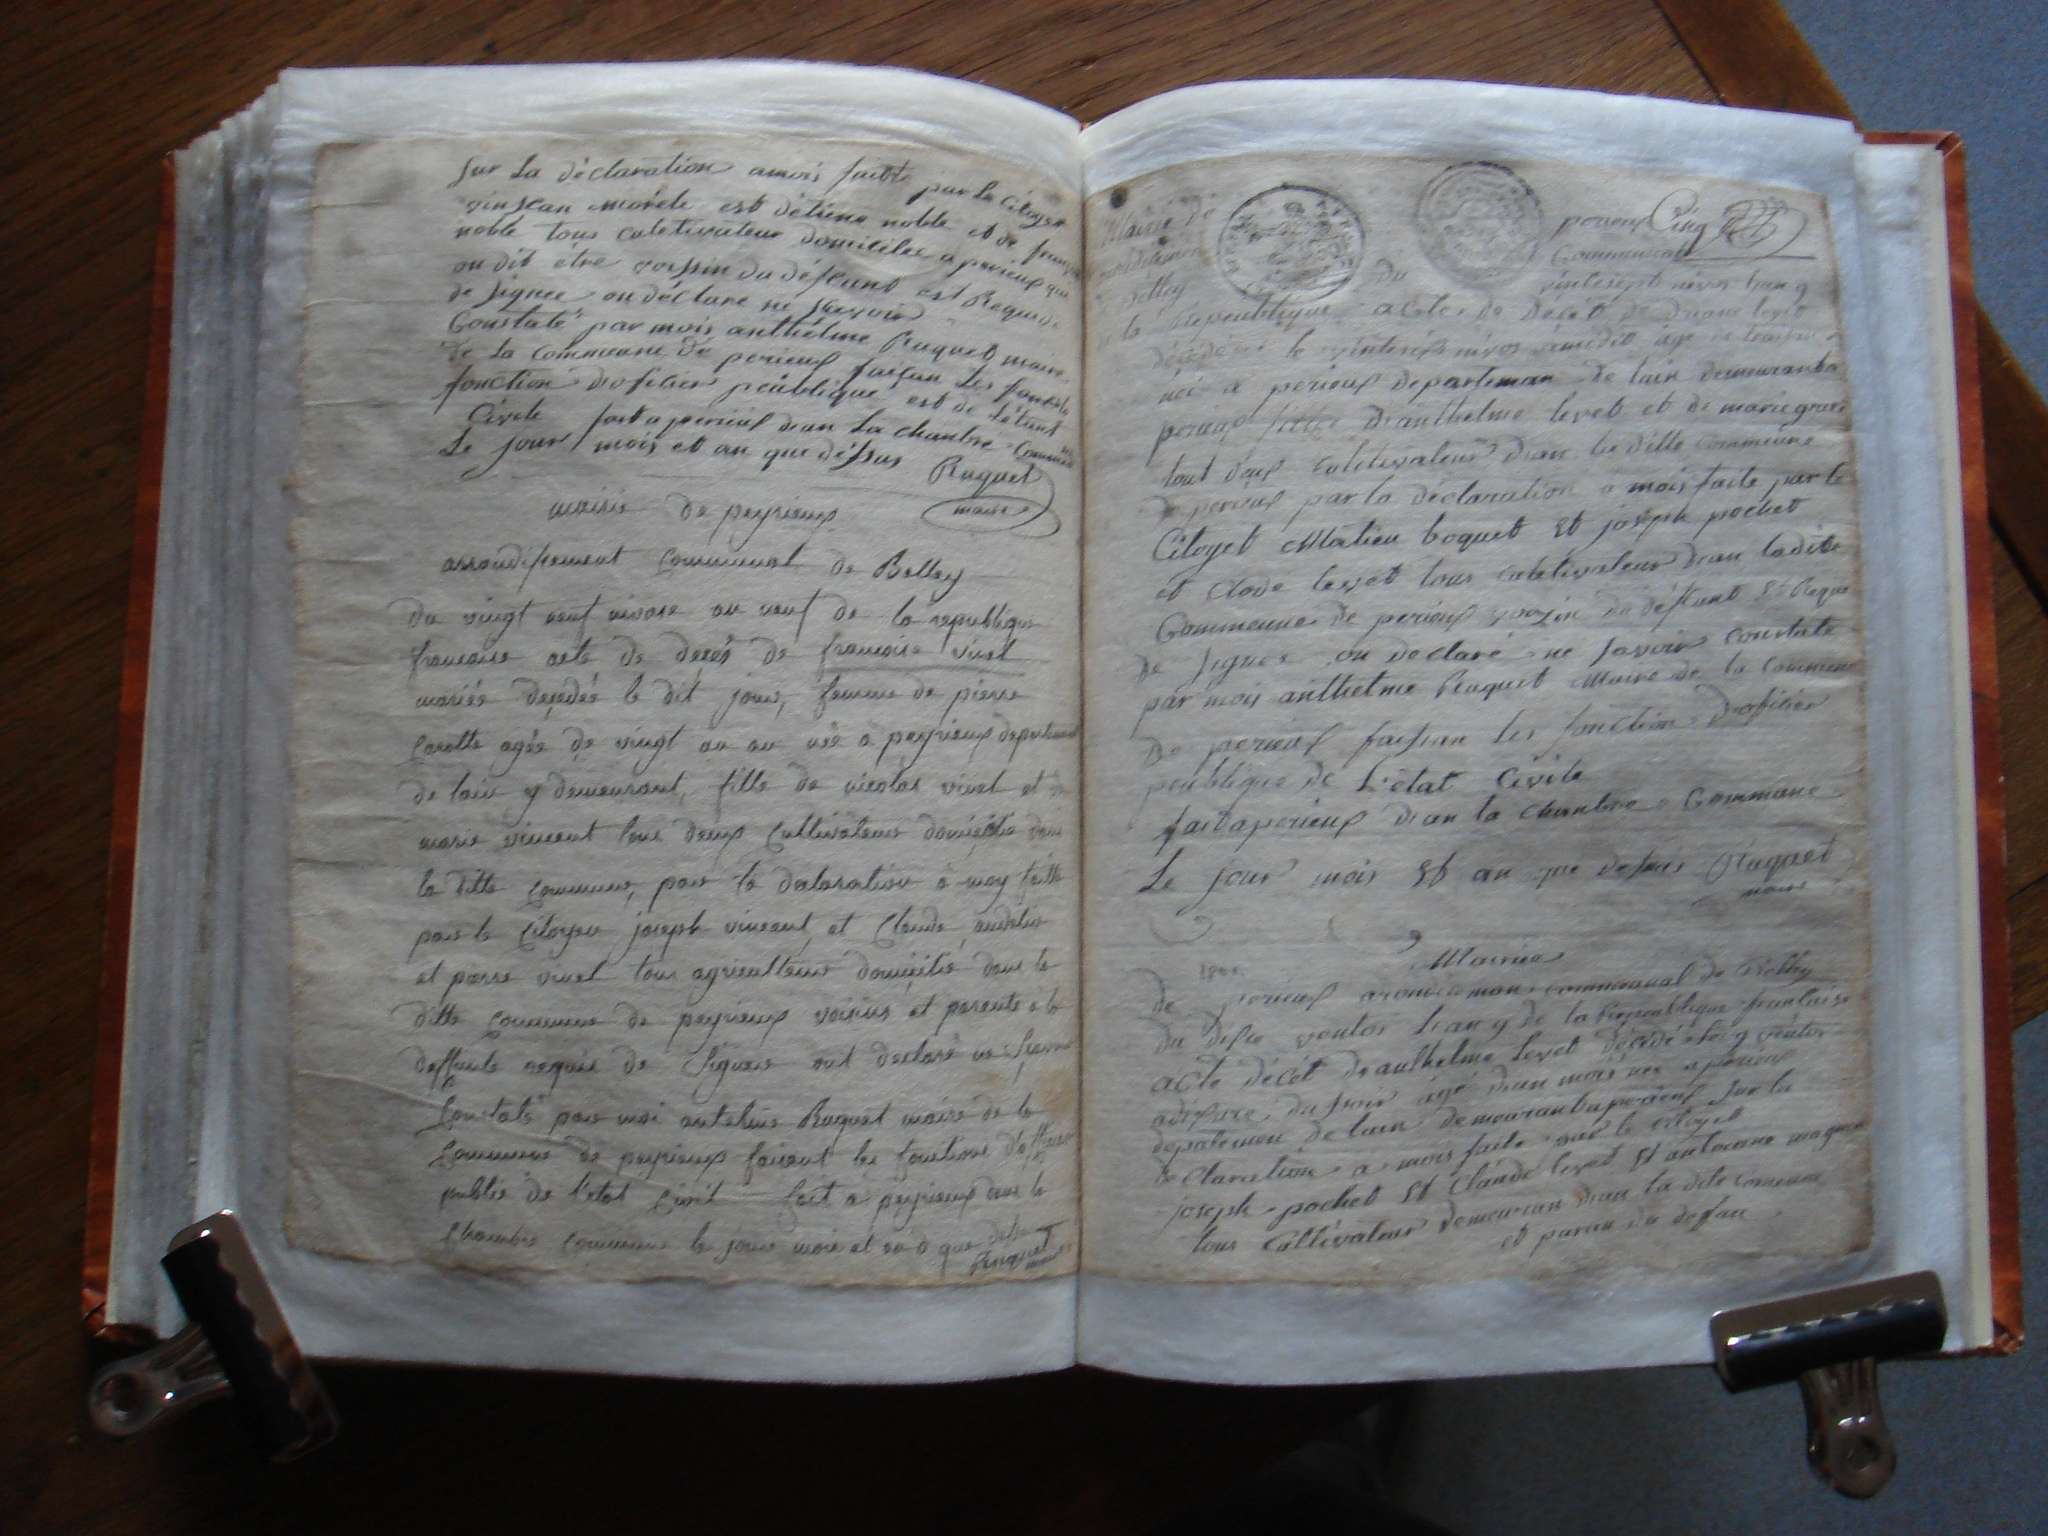 sur La déclaration amois faitte par le Citoyen
vinsean moréle est détiene noble et de françois
noble tous culetivateur domicilee a perieux qui
on dit étre voissin du défeunt est Requi de
de signee on déclare ne savoir
Constaté par mois anthélme Ruquet maire
de la commeune de perieux faisan Les
fonction d'ofitier peublique est de L'étant
Civile fait a perieux dean La chanbre Commune
Le jour mois et an que dessus Ruquet
maire
mairie de peyrieux
arrondissement Communal de Belley
Du vingt neuf nivose an neuf de la republique
francaise acte de decés de francoise vivet
mariée decedée le dit jour, femme de pierre
Carotte agée de vingt un an née a peyrieux departement
de lain y demeurant, fille de nicolas vivet et de
marie vincent tous deux Cultivateurs domicilié dans
la ditte commune, par la declaration a moy faitte
par le Citoyen joseph vincent et Claude
et pierre vivet tous agriculteurs domicilié dans la
ditte commune de peyrieux voisins et parents a la
deffunte requis de signer ont declaré ne savoir
Constaté par moi antelme Ruquet maire de la
Commune de peyrieux faisant les fonctions d'officier
public de l'etat civil fait a peyrieux dans la
Chambre commune le jour mois et an que dessus
Ruquet maire
Mairie de perieux Cinq
arondisemen Communal
de Belley du vintesept nivos l'an 9
de la Repeublique acte de decét de
décédé le vintesept nivos
néé a perieux departeman de lain demeuranta
perieux fille d'anthelme levet et de marie
tout deux culetivateur dean la ditte commeune
de perieux par la déclaration a mois faite par le
Citoyet Matieu boquet Et joseph pochet
et Clode levet tous culetivateur dean ladite
Commeune de perieux voizin du défeunt Et Requi
de signer on declaré ne savoir constaté
par mois anthelme Ruquet Maire de la commeune
De perieux faisean les fonction D'ofitier
peublique de L'état Civile
fait a perieux dean la chanbre Commune
Le jour mois Et an que desus Ruquet
maire
Mairie
De perieux arondiceman communal de Belley
du disse ventos Lean 9 de la Repeublique francaise
acte décét de anthelme levet décédé le 9 véntos
a disseure du soir agé dean mois nee a perieux
departemen de lain demeuranta perieux sur la
declaration a mois faite par le citoyet
joseph pochet Et Claude levet Et antoine
tous Cultivateur demeuran dean la dite commeune
et paran du defean